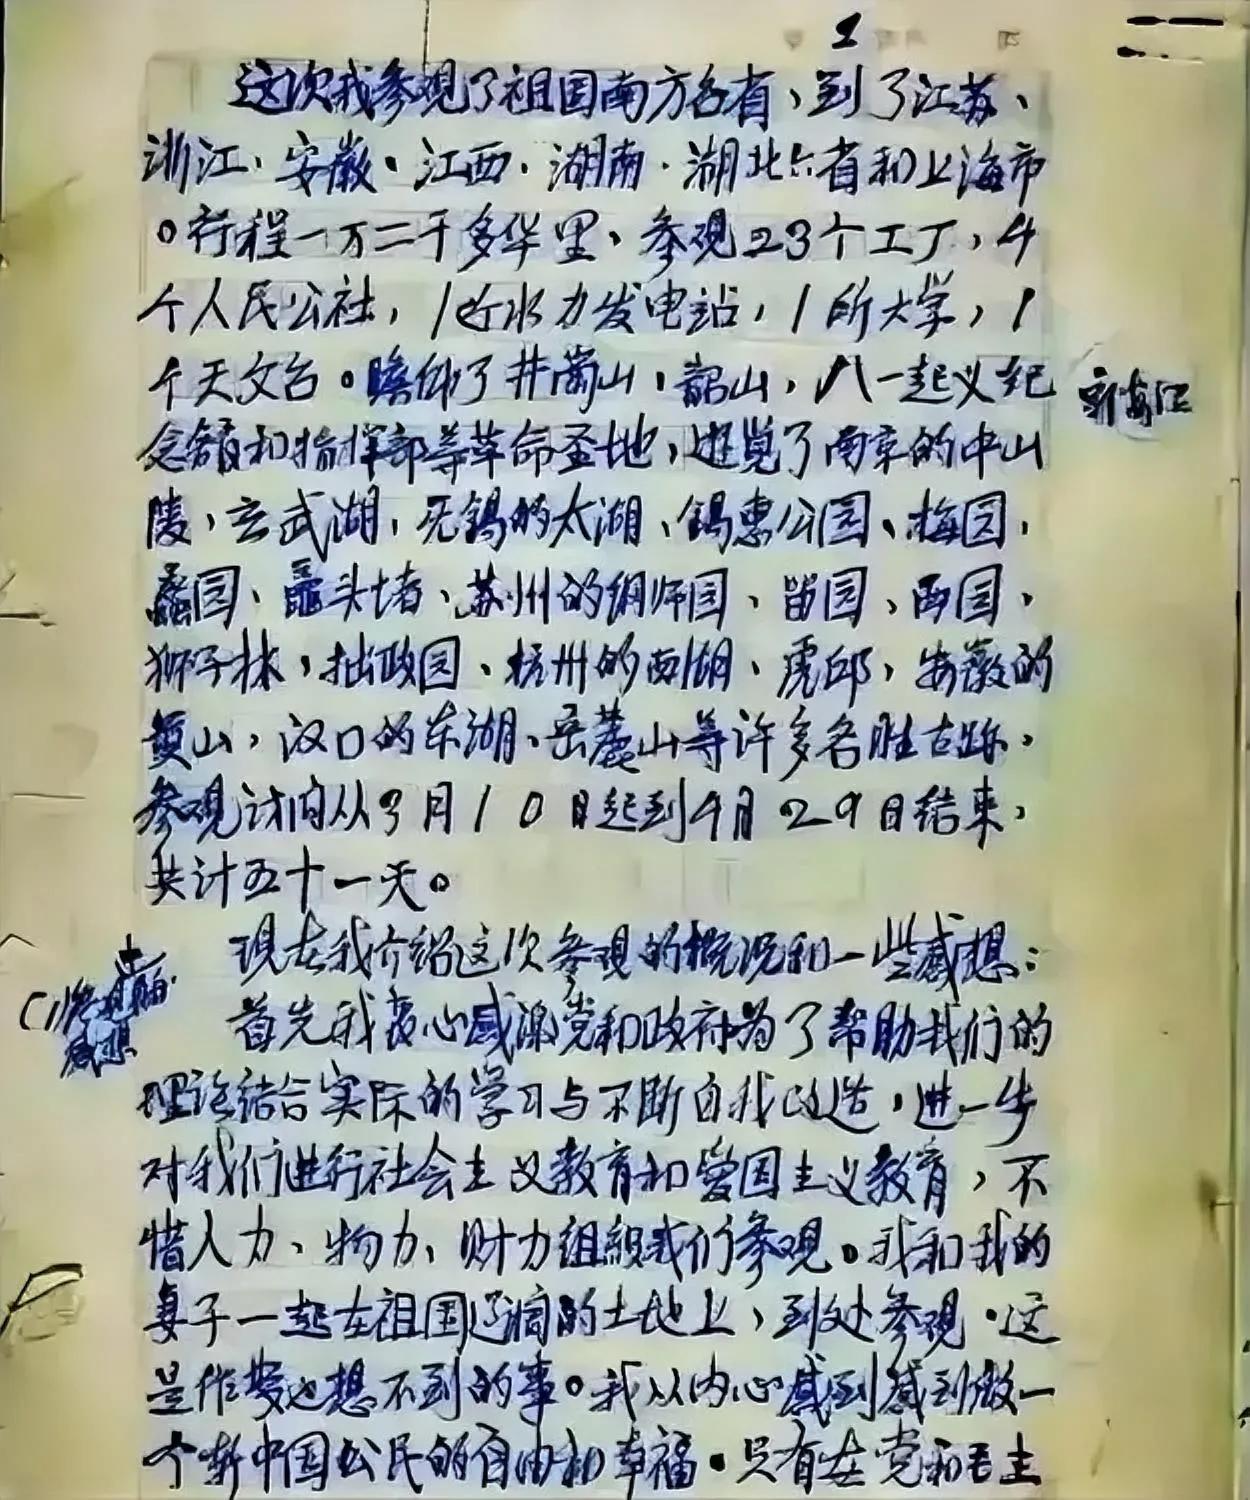 1
这次我参观了祖国南方各省、到了江苏、
浙江、安徽、江西、湖南、湖北六省和上海市
。行程一万二千多华里、参观23个工厂,4
个人民公社,1处水力发电站,1所大学,1
个天文台。瞻仰了井岗山,韶山,八一起义纪
念馆和指挥部等革命圣地,逛览了南京的中山
陵,玄武湖,无锡的太湖、锡惠公园、梅园,
蠡园、鼋头堵、苏州的网师园、留园、西园、
狮子林,拙政园、杭州的西湖、虎邱,安徽的
黄山,汉口的东湖、岳麓山等许多名胜古跡,
参观时间从3月10日起到4月29日结束,
共计五十一天。
现在我介绍这次参观的概况和一些感想:
首先我衷心感谢党和政府为了帮助我们的
理论结合实际的学习与不断自我改造,进一步
对我们进行社会主义教育和爱国主义教育,不
惜人力、物力、财力组织我们参观。我和我的
妻子一起在祖国辽阔的土地上,到处参观。这
是作梦也想不到的事。我从内心感到感到做一
个新中国公民的自由和幸福。只有在党和毛主
新安江
感想